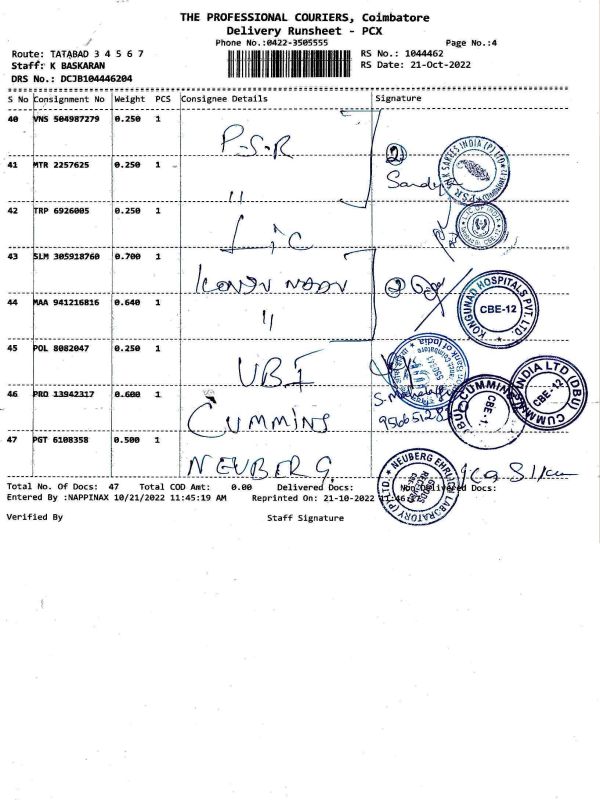 THE PROFESSIONAL COURIERS, Coimbatore
Delivery Runsheet - PCX
Phone No.:0422-3505555 Page No.:4
Route: TATABAD 3 4 5 6 7 RS No.: 1044462
Staff: K BASKARAN RS Date: 21-Oct-2022
DRS No.: DCJB104446204
S No Consignment No Weight PCS Consignee Details Signature
40 VNS 504987279 0.250 1 P-S-R
41 MTR 2257625 0.250 1 "
42 TRP 6926005 0.250 1 LIC
43 SLM 305918760 0.700 1
44 MAA 941216816 0.640 1 "
45 POL 8082047 0.250 1 UBI
46 PRO 13942317 0.600 1 CUMMINS
47 PGT 6108358 0.500 1 NEUBERG
2
LIC OF INDIA
2
KONGUNAD HOSPITALS PVT. LTD.
CBE-12
CUMMINS INDIA LTD (DBU)
CBE-12
NEUBERG EHRLICH LABORATORY (P) LTD.
Total No. Of Docs: 47 Total COD Amt: 0.00 Delivered Docs: Non Delivered Docs:
Entered By :NAPPINAX 10/21/2022 11:45:19 AM Reprinted On: 21-10-2022
Verified By Staff Signature